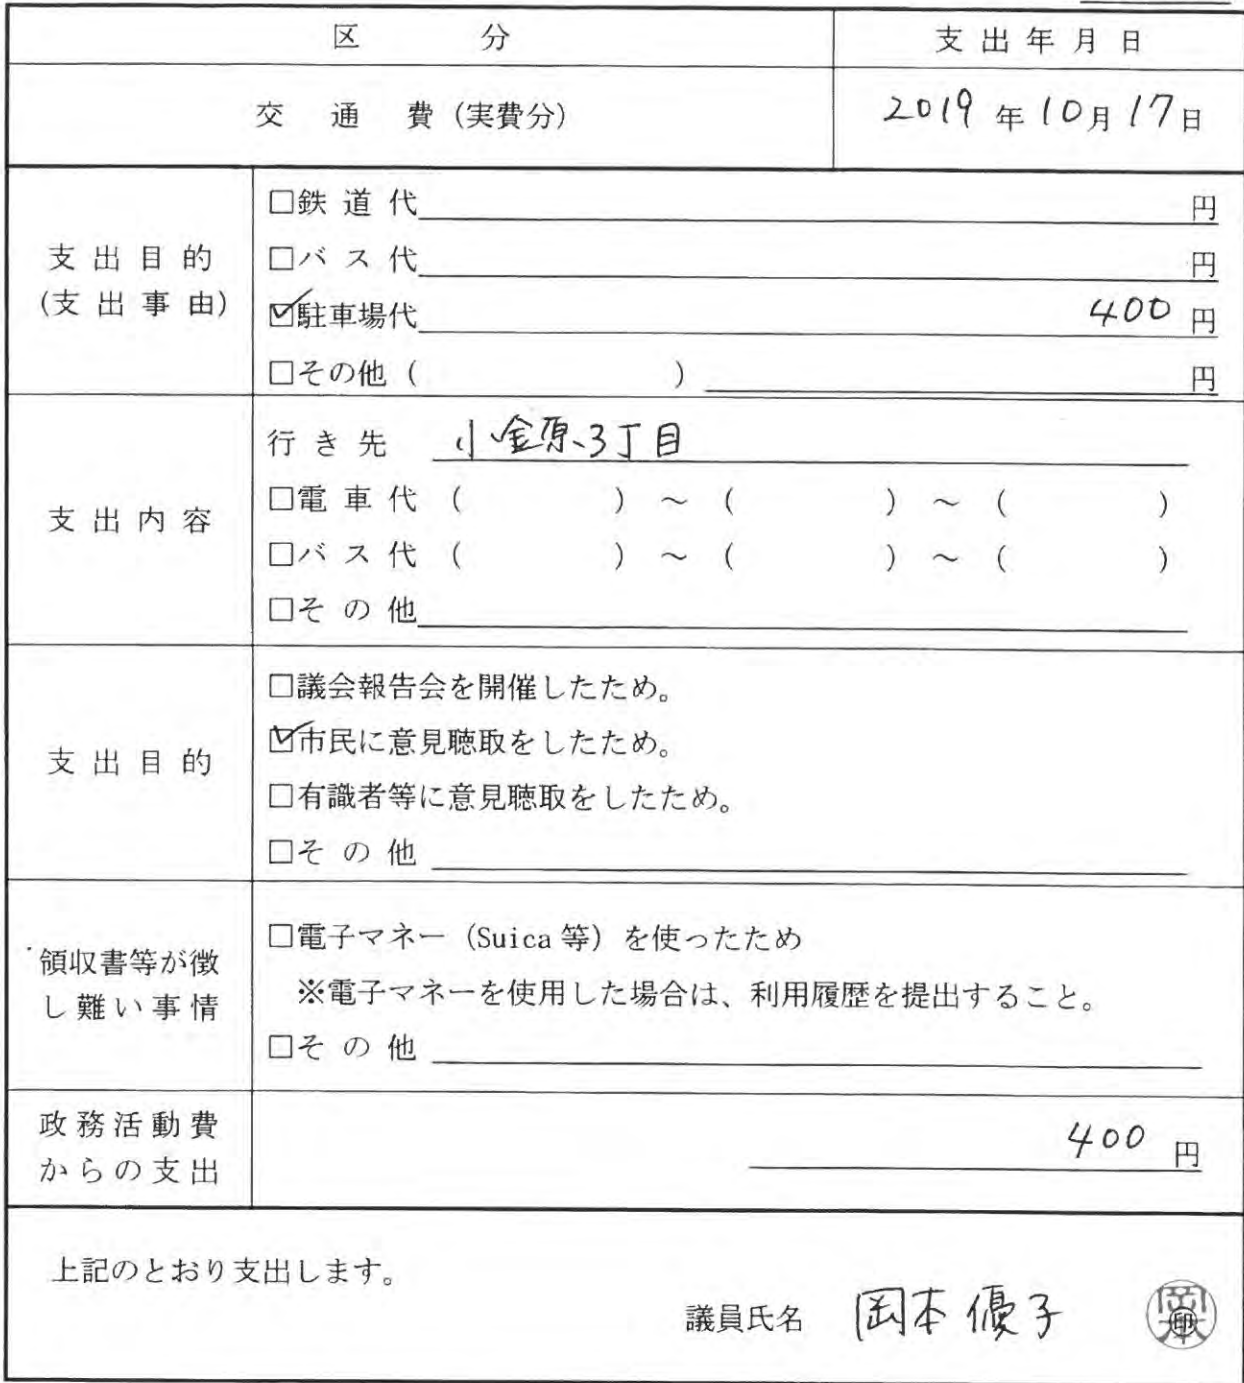 区 分 支出年月日
交 通 費 (実費分) 2019 年 10月 17日
支出目的
(支出事由)
□鉄道代 円
□バス代 円
☑駐車場代 400 円
□その他 ( ) 円
支出内容
行き先 小金原3丁目
□電車代 ( ) ～ ( ) ～ ( )
□バス代 ( ) ～ ( ) ～ ( )
□その他
支出目的
□議会報告会を開催したため。
☑市民に意見聴取をしたため。
□有識者等に意見聴取をしたため。
□その他
領収書等が徴
し難い事情
□電子マネー (Suica 等) を使ったため
※電子マネーを使用した場合は、利用履歴を提出すること。
□その他
政務活動費
からの支出
400 円
上記のとおり支出します。
議員氏名 岡本優子 岡本 印